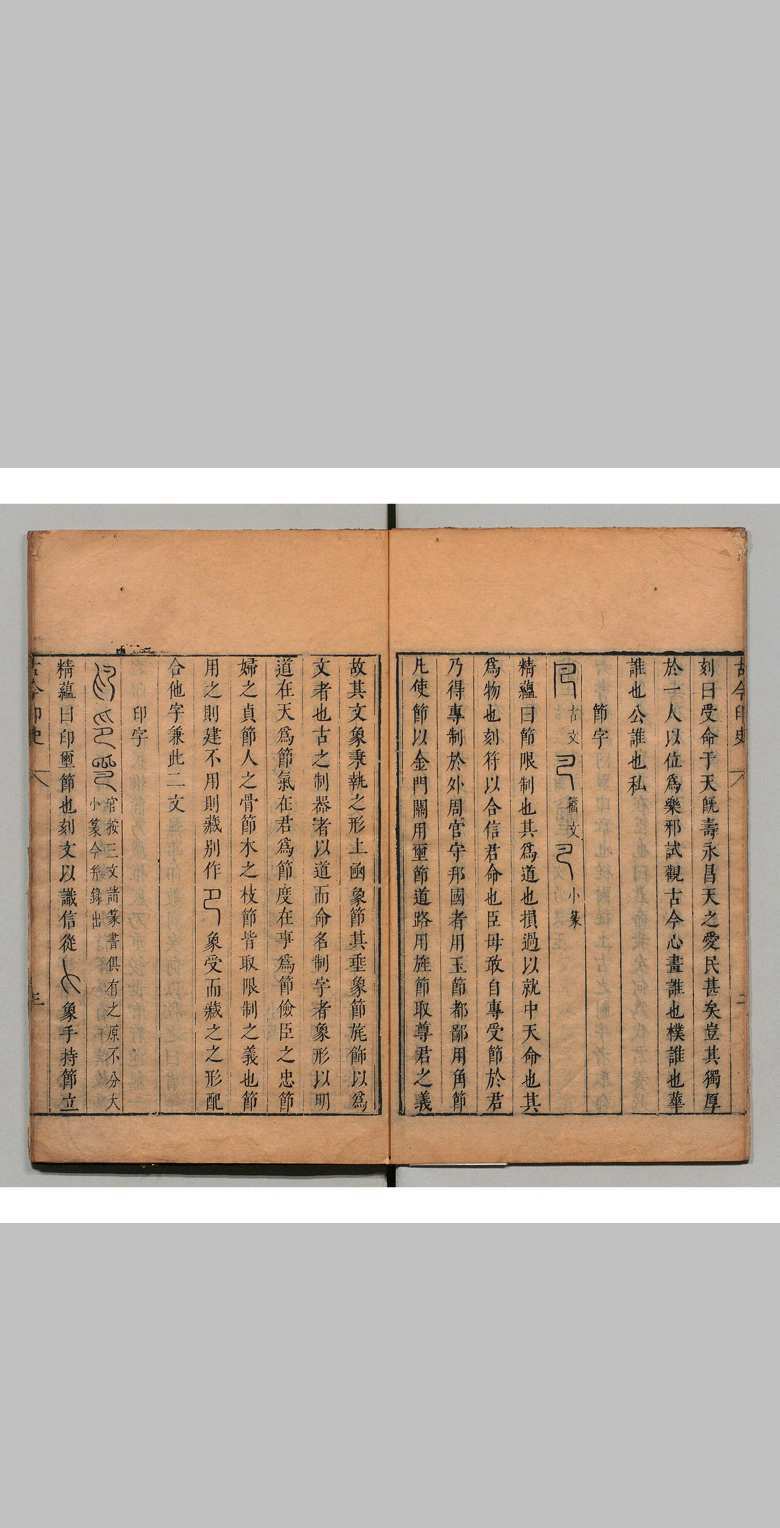 刻曰受命于天旣壽永昌天之愛民甚矣豈其獨厚
於一人以位爲樂邪試觀古今心畫誰也樸誰也華
誰也公誰也私
節字
古文 籀文 小篆
精蘊曰節限制也其爲道也損過以就中天命也其
爲物也刻符以合信君命也臣毋敢自專受節於君
乃得專制於外周官守邦國者用玉節都鄙用角節
凡使節以金門關用璽節道路用旌節取尊君之義
故其文象秉執之形上函象節其垂象節旄飾以爲
文者也古之制器者以道而命名制字者象形以明
道在天爲節氣在君爲節度在事爲節儉臣之忠節
婦之貞節人之骨節木之枝節皆取限制之義也節
用之則建不用則藏别作㔾象受而藏之之形配
合他字兼此二文
印字
官按三文諸篆書俱有之原不分大
小篆今錄出
精蘊曰印璽節也刻文以識信從象手持節立
古今印史